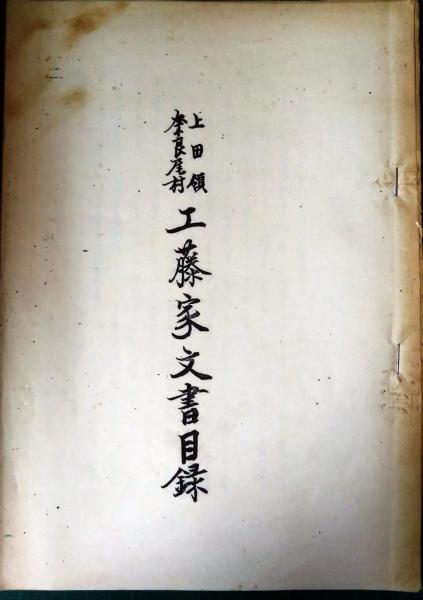 上田領
奈良尾村
工藤家文書目録